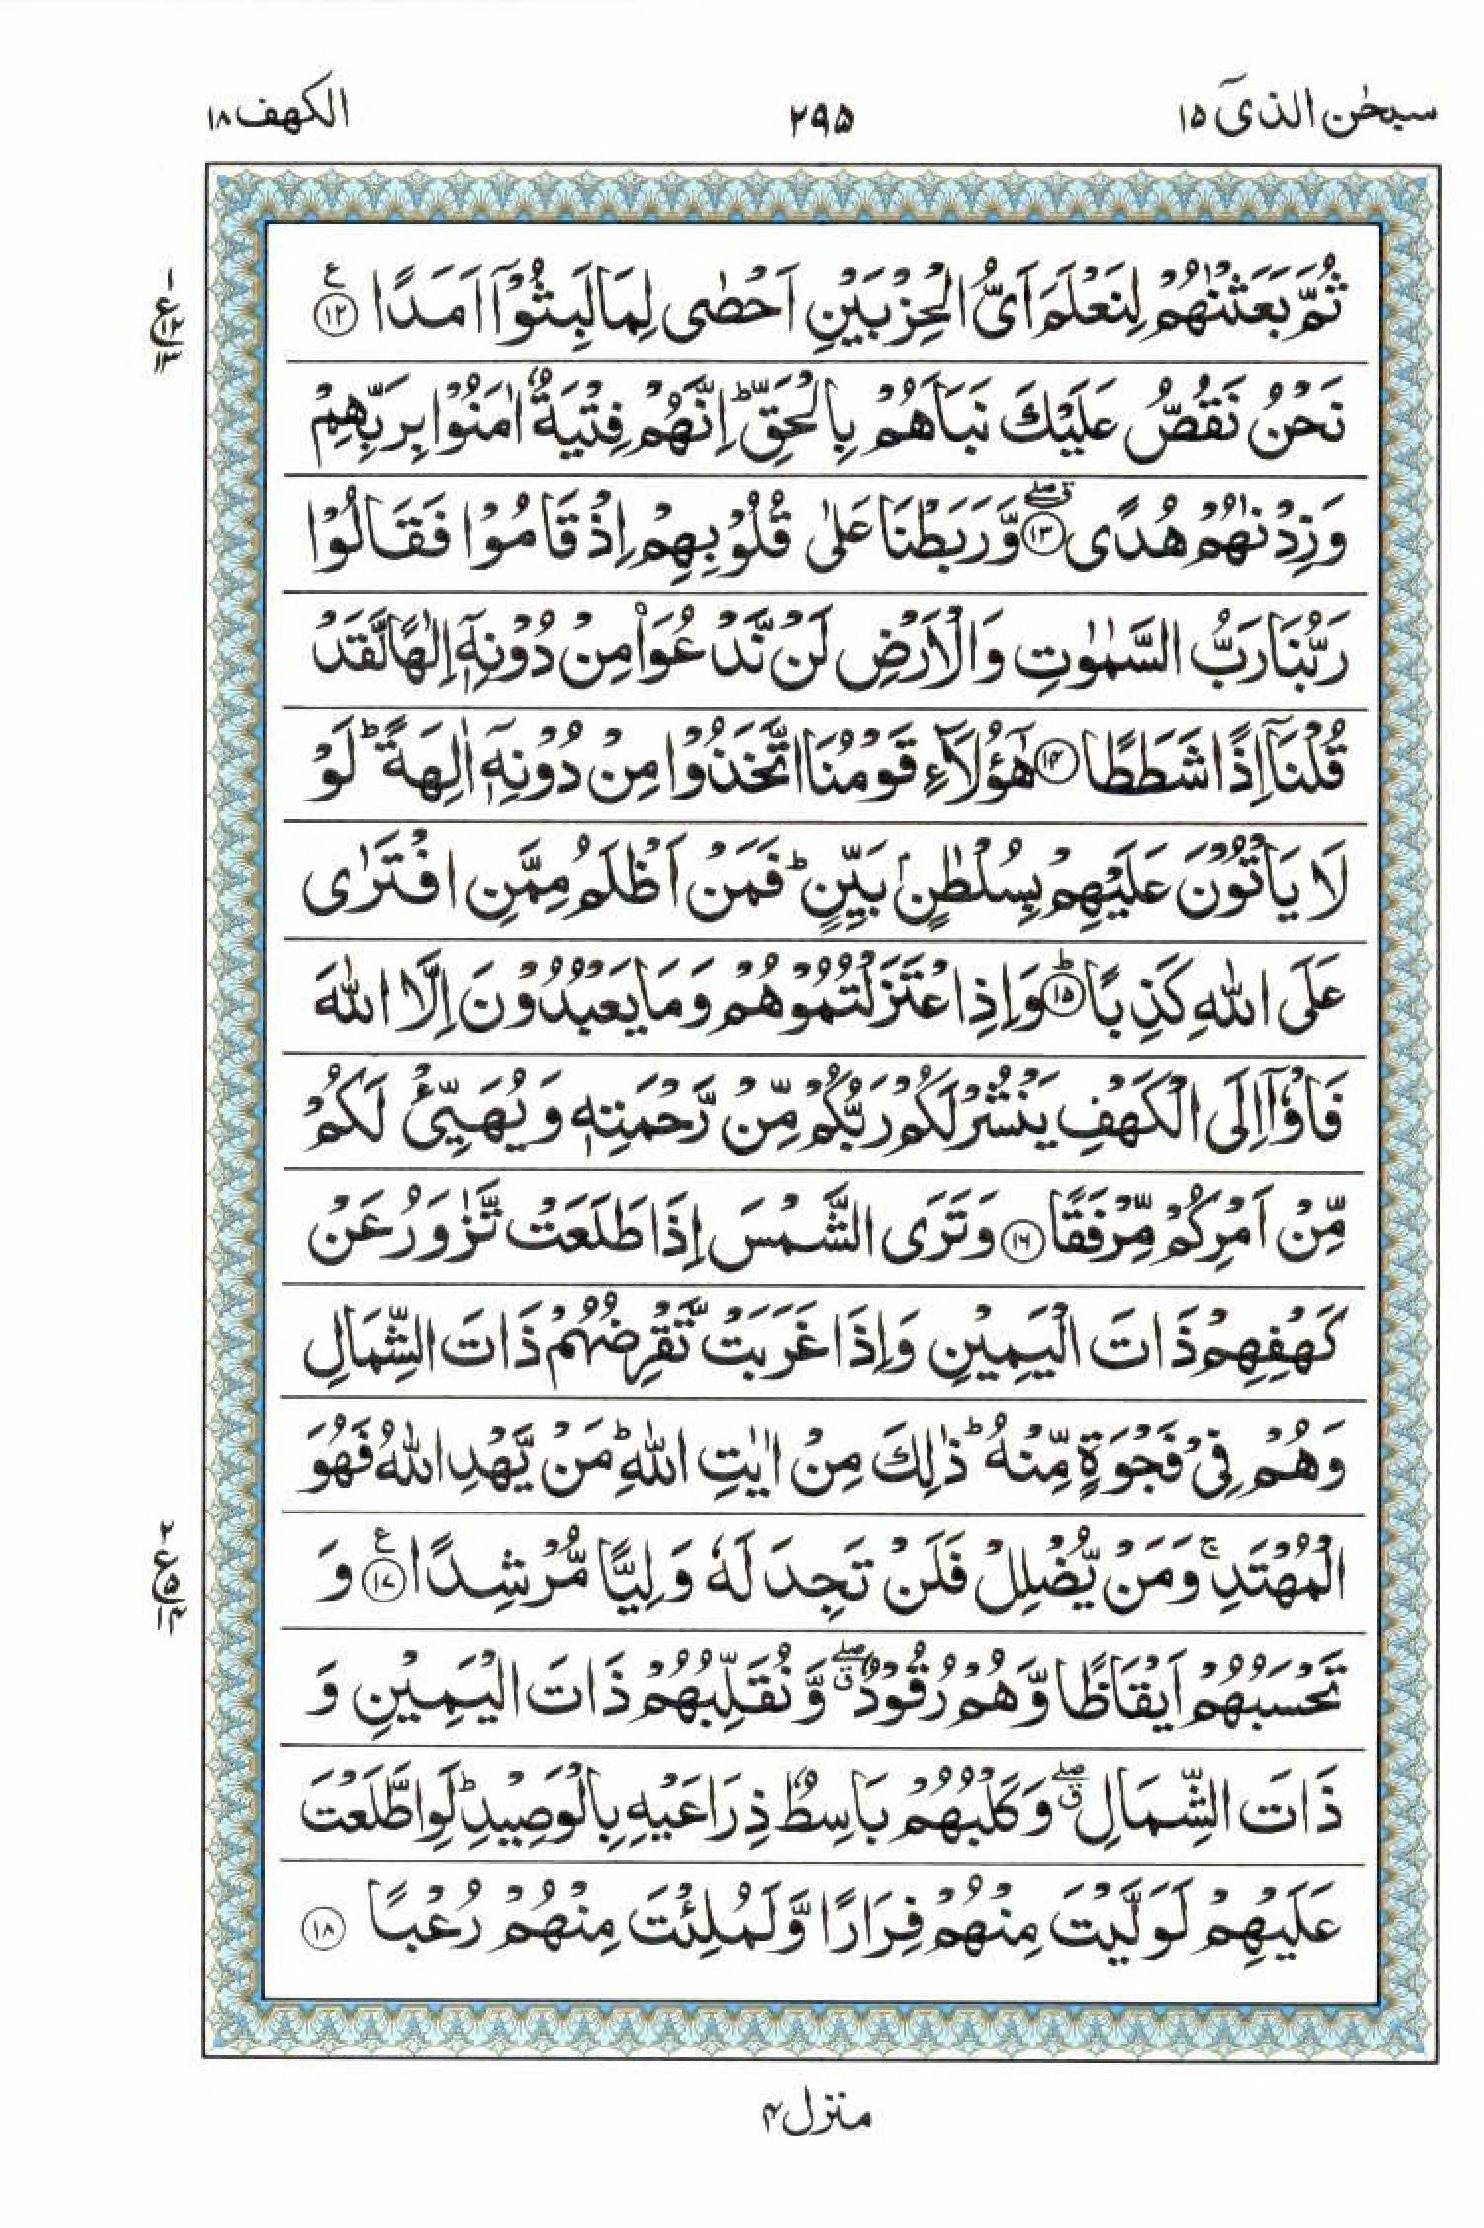 سبحٰن الذیٓ ۱۵
۲۹۵
الکهف ۱۸
ثُمَّ بَعَثْنٰهُمْ لِنَعْلَمَ اَیُّ الْحِزْبَیْنِ اَحْصٰی لِمَا لَبِثُوْۤا اَمَدًا ﴿۱۲﴾ ع
۱
ع
۱۲
۱۳
نَحْنُ نَقُصُّ عَلَیْكَ نَبَاَهُمْ بِالْحَقِّ ؕ اِنَّهُمْ فِتْیَةٌ اٰمَنُوْا بِرَبِّهِمْ
وَزِدْنٰهُمْ هُدًی ﴿۱۳﴾ۖق وَّرَبَطْنَا عَلٰی قُلُوْبِهِمْ اِذْ قَامُوْا فَقَالُوْا
رَبُّنَا رَبُّ السَّمٰوٰتِ وَالْاَرْضِ لَنْ نَّدْعُوَا۠ مِنْ دُوْنِهٖۤ اِلٰهًا لَّقَدْ
قُلْنَاۤ اِذًا شَطَطًا ﴿۱۴﴾ هٰۤؤُلَآءِ قَوْمُنَا اتَّخَذُوْا مِنْ دُوْنِهٖۤ اٰلِهَةً ؕ لَوْ
لَا یَاْتُوْنَ عَلَیْهِمْ بِسُلْطٰنٍۭ بَیِّنٍ ؕ فَمَنْ اَظْلَمُ مِمَّنِ افْتَرٰی
عَلَی اللّٰهِ كَذِبًا ﴿۱۵﴾ؕ وَاِذِ اعْتَزَلْتُمُوْهُمْ وَمَا یَعْبُدُوْنَ اِلَّا اللّٰهَ
فَاْوٗۤا اِلَی الْكَهْفِ یَنْشُرْ لَكُمْ رَبُّكُمْ مِّنْ رَّحْمَتِهٖ وَیُهَیِّئْ لَكُمْ
مِّنْ اَمْرِكُمْ مِّرْفَقًا ﴿۱۶﴾ وَتَرَی الشَّمْسَ اِذَا طَلَعَتْ تَّزٰوَرُ عَنْ
كَهْفِهِمْ ذَاتَ الْیَمِیْنِ وَاِذَا غَرَبَتْ تَّقْرِضُهُمْ ذَاتَ الشِّمَالِ
وَهُمْ فِیْ فَجْوَةٍ مِّنْهُ ؕ ذٰلِكَ مِنْ اٰیٰتِ اللّٰهِ ؕ مَنْ یَّهْدِ اللّٰهُ فَهُوَ
الْمُهْتَدِ ۚ وَمَنْ یُّضْلِلْ فَلَنْ تَجِدَ لَهٗ وَلِیًّا مُّرْشِدًا ﴿۱۷﴾ ع وَ
۲
ع
۵
۱۴
تَحْسَبُهُمْ اَیْقَاظًا وَّهُمْ رُقُوْدٌ ۖق وَّنُقَلِّبُهُمْ ذَاتَ الْیَمِیْنِ وَ
ذَاتَ الشِّمَالِ ۖق وَكَلْبُهُمْ بَاسِطٌ ذِرَاعَیْهِ بِالْوَصِیْدِ ؕ لَوِ اطَّلَعْتَ
عَلَیْهِمْ لَوَلَّیْتَ مِنْهُمْ فِرَارًا وَّلَمُلِئْتَ مِنْهُمْ رُعْبًا ﴿۱۸﴾
منزل ۴